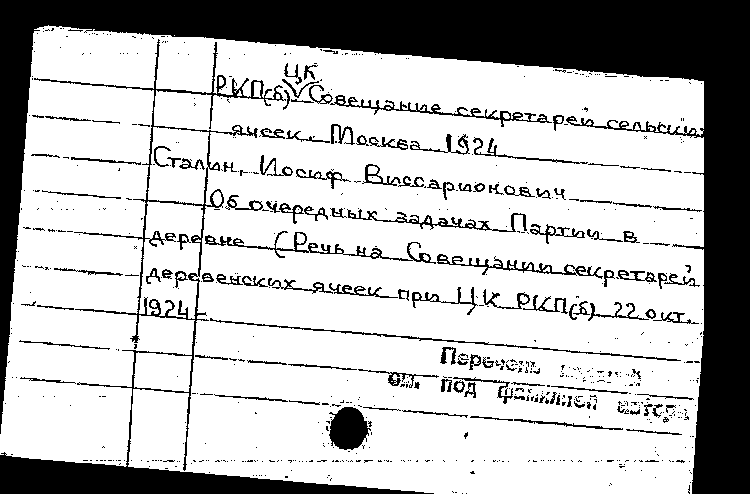 ЦК
РКП(б) Совещание секретарей сельских
ячеек. Москва 1924
Сталин, Иосиф Виссарионович
Об очередных задачах Партии в
деревне (Речь на Совещании секретарей
деревенских ячеек при ЦК РКП(б) 22 окт.
1924 -
Перечень
см. под фамилией автора